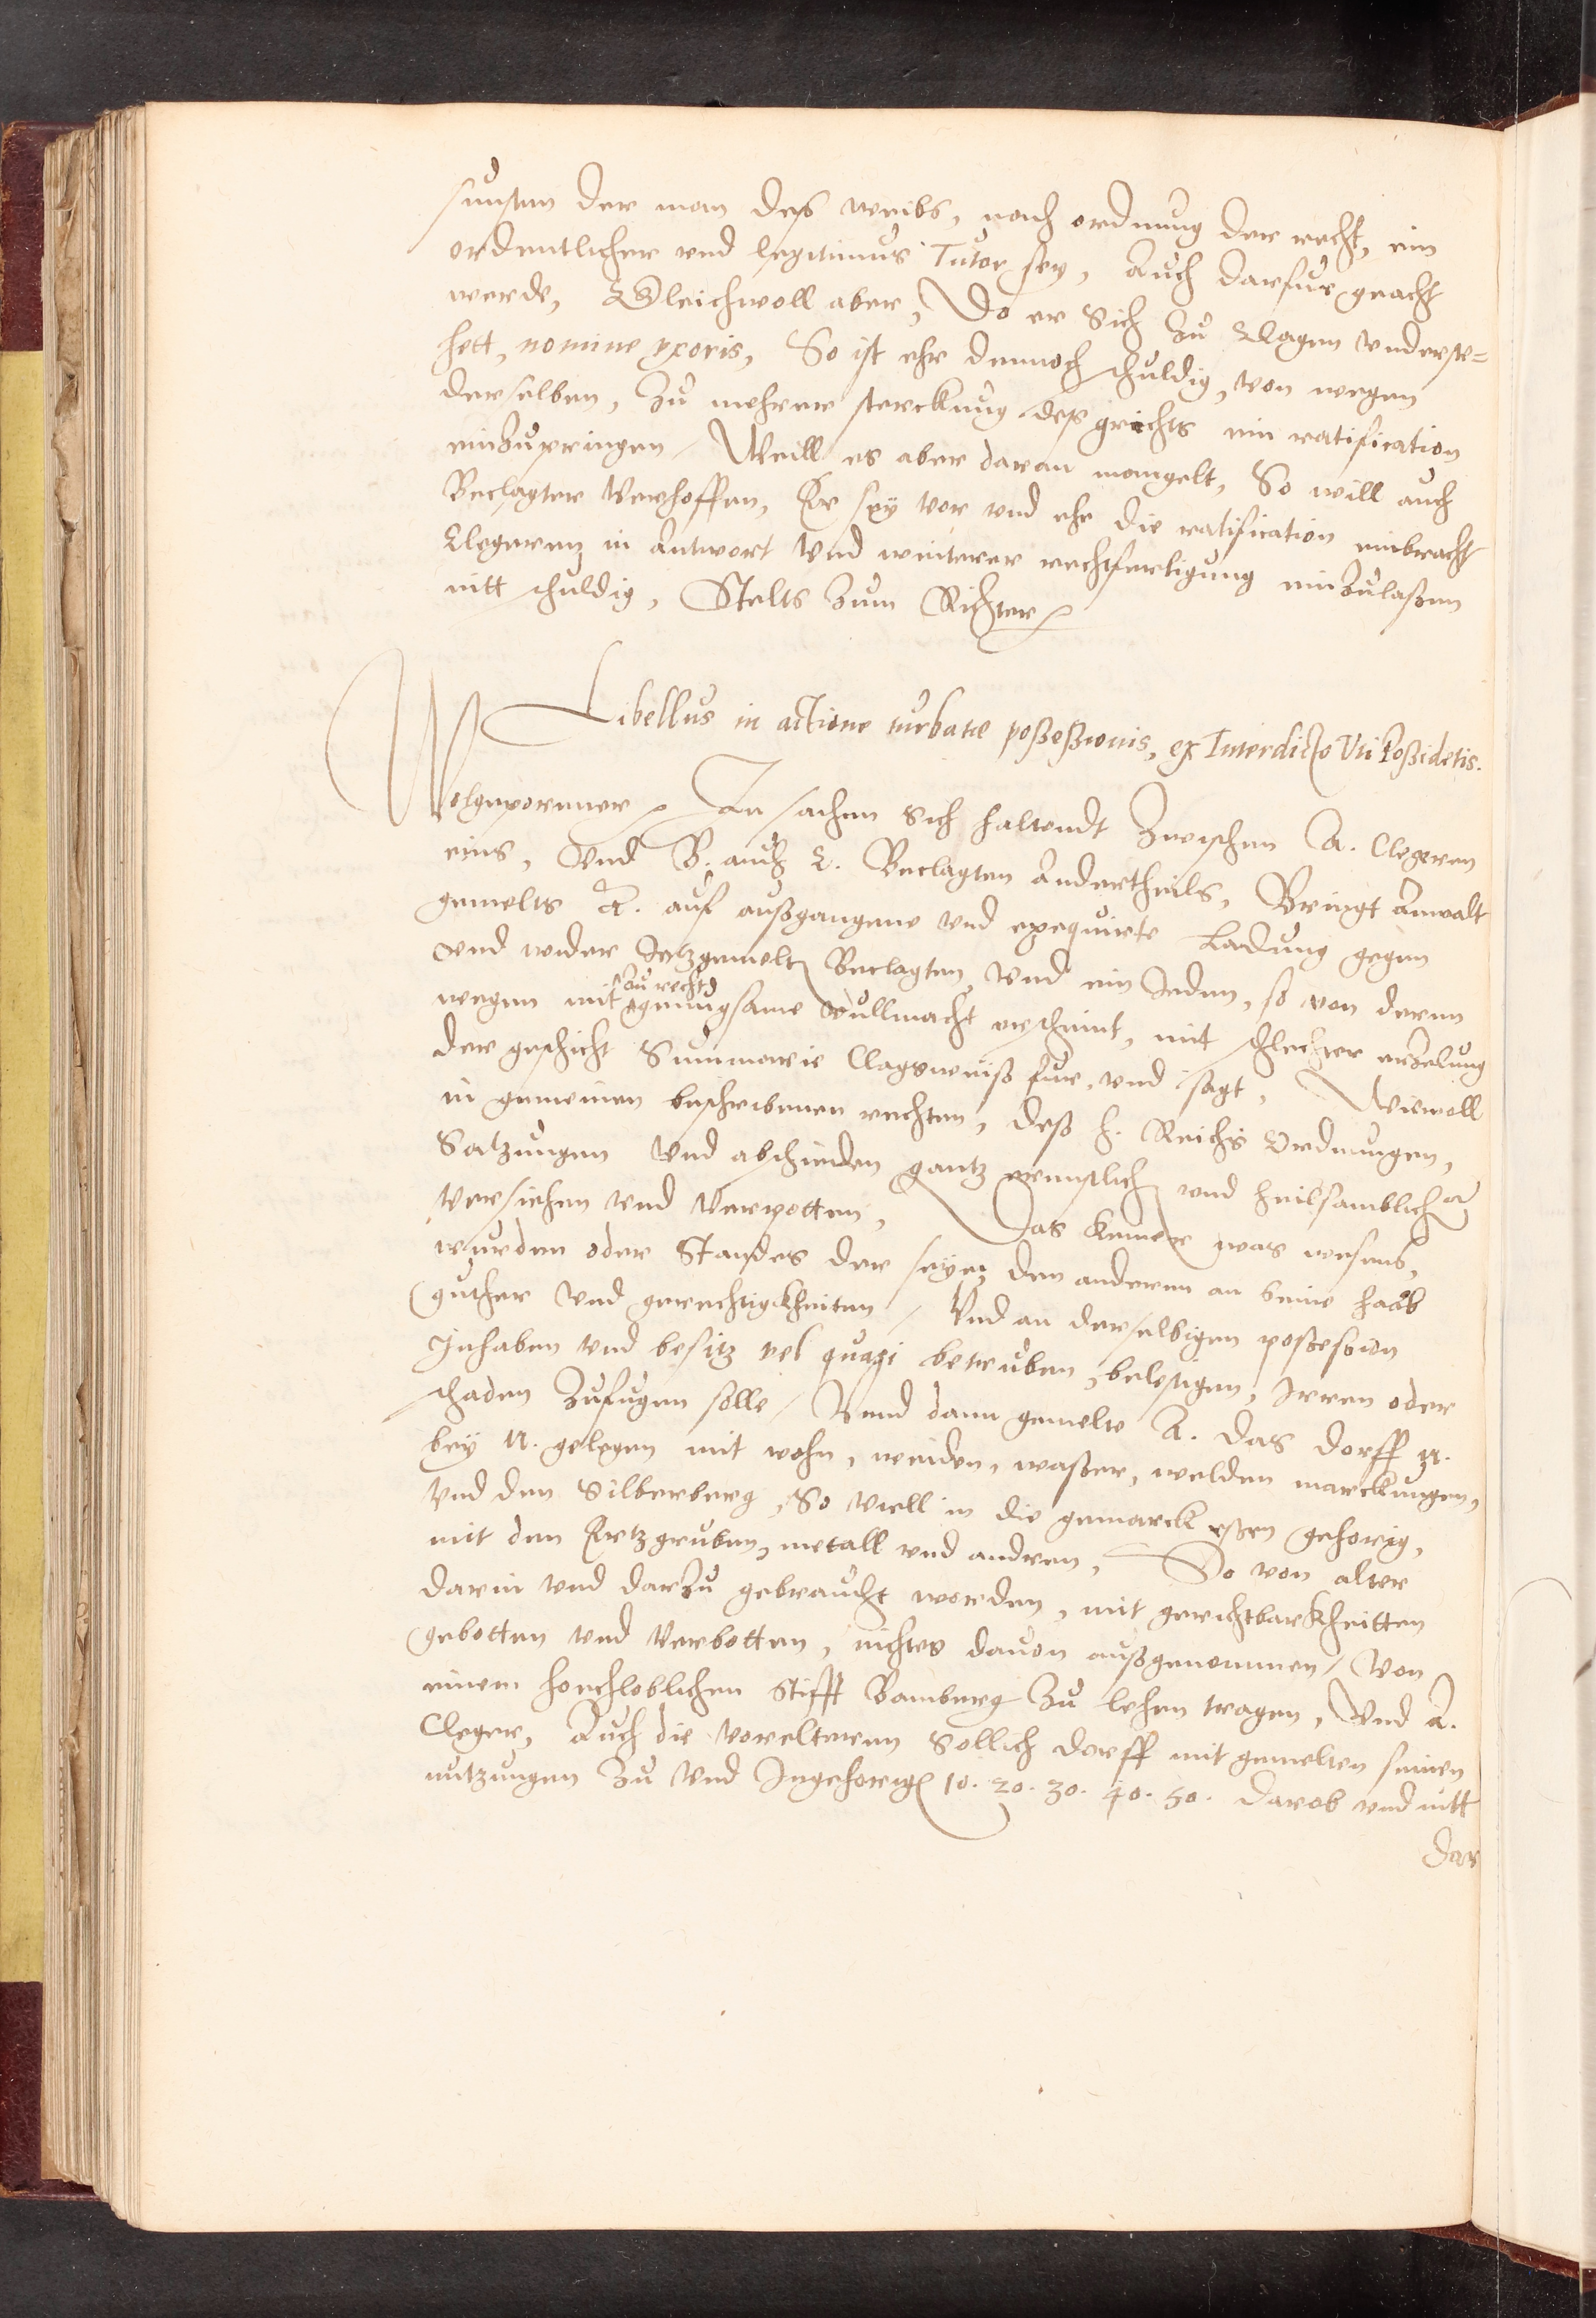 sunsten der man deß weibs, nach ordnung der recht, ein
ordentlicher vnd legitimus Tutor sey, Auch darfur geacht
werde, Gleichwoll aber, Do er Sich Zu Clagen vnderste=
hett, nomine vxoris, So ist ehr dennoch schuldig, von wegen
derselben, Zu mehrer sterckung deß grichts ein ratification
einzupringen / Weill es aber daran mangelt, So will auch
Beclagter Verhoffen, Er sey vor vnd ehe die ratification einbracht
Clegeren in Antwort Vnd weiterer rechtfertigung einzulaßen
nitt schuldig, Stelts zum Richter
Libellus in actione turbatæ poßeßionis, ex Interdicto Vti Poßidetis.
Wolgeporener In sachen Sich haltendt Zwischen A. Clegeren
eins, Vnd B. auch C. Beclagten Andertheils, Bringt Anwalt
gemelts A. auf außgangene vnd exequirte Ladung gegen
vnd wider Jetzgemelte Beclagten, Vnd ein Jeden, so von deren
zu recht
wegen mit gnungsame Vullmacht erscheint, mit schlechter erzelung
der geschicht Summarie Clagsweiß fur, vnd sagt, Wiewoll
in gemeinen beschribenen rechten, deß h. Reichs Ordnungen,
Satzungen Vnd abschieden gantz ernstlich vnd heilsamblich
Versehen Vnd Verpotten, Das keiner was wesens,
wurden oder Standes der seye, den anderen an seine haab
guther Vnd gerechtigkheiten / Vnd an derselbigen poßeßion
Inhaben Vnd besitz vel quasi betruben, belestigen, Irren oder
schaden Zufugen solle / Vnnd dann gemelte A. das dorff N.
bey N. gelegen mit wohn, weiden, waßer, welden marckungen,
Vnd den Silberberg, So viell in die gemarck eßen gehorig,
mit den Ertzgruben, metall vnd andren, So von alter
darin Vnd darzu gebraucht worden, mit gerichtbarkheitten
gebotten Vnd Verbotten, nichtes dauon außgenommen / Von
einem hochloblichen Stifft Bamberg Zu lehen tragen, Vnd A.
Cleger, Auch die Vorelteren Sollich dorff mit gemelten seinen
nutzungen Zu Vnd Ingehorige 10. 20. 30. 40. 50. darob vnd nitt
dar